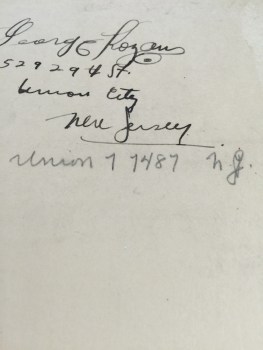 George Kozan
529 29 4 St.
Union City
New Jersey
Union 7 7487 N.J.